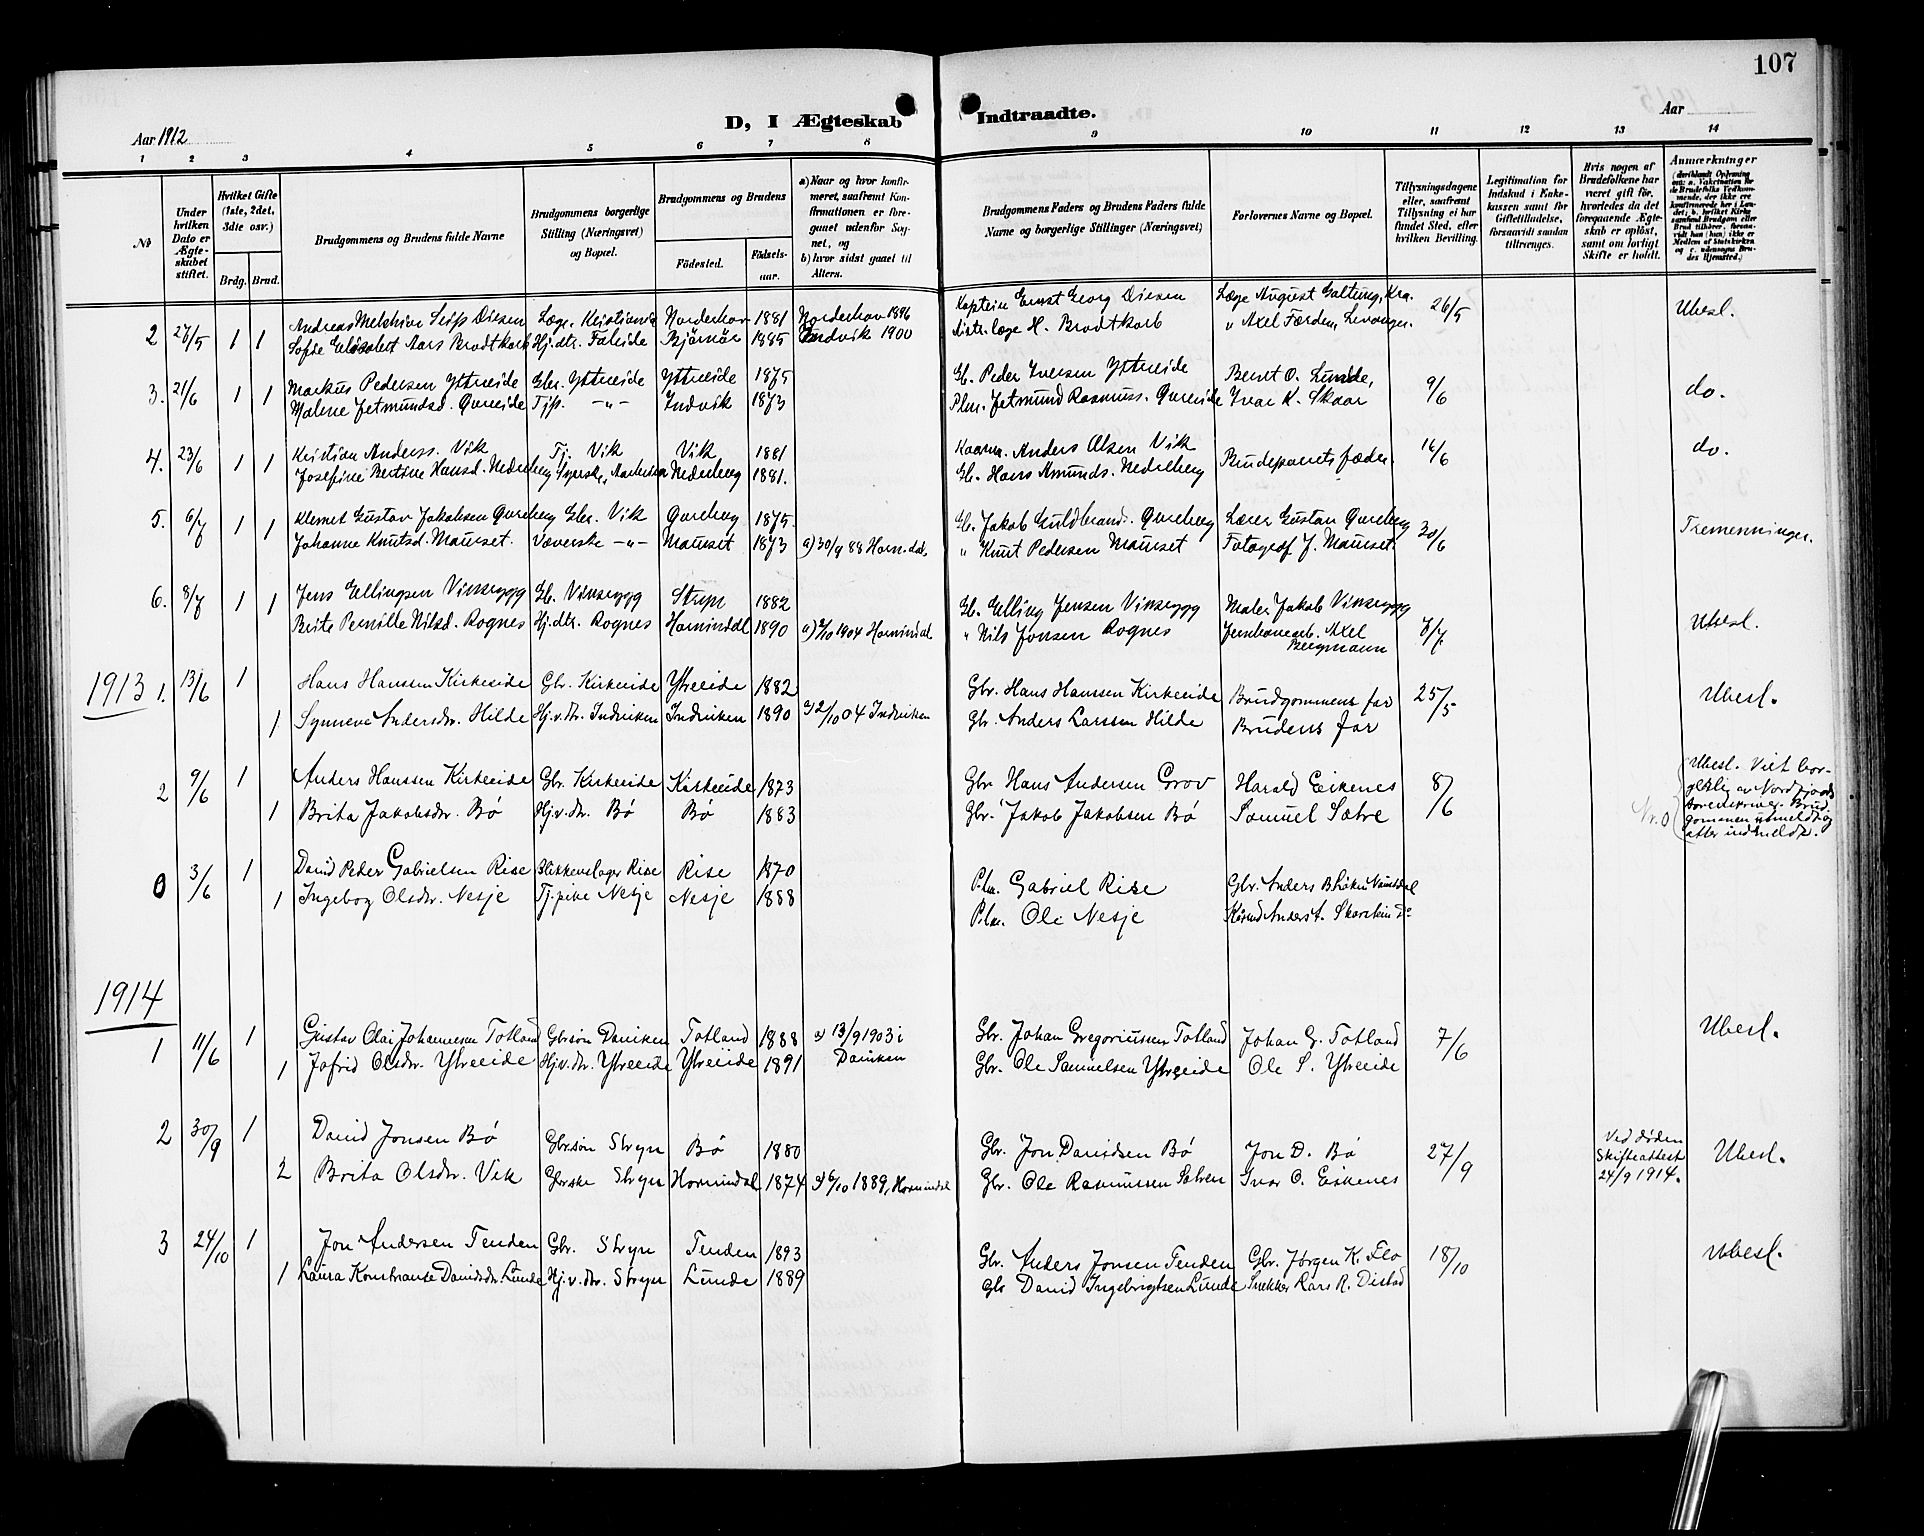 107
Aar 1912
D, I Ægteskab Indtraadte.
Aar
1 2 3 4 5 6 7 8 9 10 11 12 13 14
No
Under hvilken Dato er Ægteskabet stiftet.
Hvilket Gifte (1ste, 2det, 3die osv.)
Brdg. Brud.
Brudgommens og Brudens fulde Navne
Brudgommens borgerlige Stilling (Næringsvei) og Bopæl.
Brudgommens og Brudens
Fødested. Fødselsaar.
a) Naar og hvor konfirmeret, saafremt Konfirmationen er foregaaet udenfor Sognet, og
b) hvor sidst gaaet til Alters.
Brudgommens Faders og Brudens Faders fulde Navne og borgerlige Stillinger (Næringsvei)
Forlovernes Navne og Bopæl.
Tillysningsdagene eller, saafremt Tillysning ei har fundet Sted, efter hvilken Bevilling.
Legitimation for Indskud i Enkekassen samt for Giftetilladelse, forsaavidt saadan tiltrænges.
Hvis nogen af Brudefolkene har været gift før, hvorledes da det foregaaende Ægteskab er opløst, samt om lovligt Skifte er holdt.
Anmærkninger
2 27/5 1 1 Andreas Melchior Diesen Læge, Kristiania Norderhov 1881 Norderhov 1896 Kaptein Ernst Georg Diesen Læge August Galtung, Kra. 26/5 Ubesl.
Sofie Elisabet Aars Brodtkorb Hj.dtr. Faleide Bjørnør 1885 Indvik 1900 Distr.læge H. Brodtkorb " Axel Færden, Levanger.
3. 21/6 1 1 Markus Pedersen Ytreeide Gbr. Ytreeide Ytreeide 1875 Gb. Peder Iversen Ytreeide Bernt O. Lunde, 9/6 do.
Malene Jetmundsd. Gureeide Tjp. -"- Indvik 1873 Plm. Jetmund Rasmuss. Gureeide Ivar K. Skaar
4. 23/6 1 1 Kristian Anderss. Vik Tj. Vik Vik 1881 Kaarm. Anders Olsen Vik 16/6 do.
Josefine Bertine Hansd. Nedreberg Syerske, Nedreberg 1881. Gb. Hans Amunds. Nedreberg Brudeparets fædre
5. 6/7 1 1 Klemet Gustav Jakobsen Gureberg Gbr. Vik Gureberg 1875. Gb. Jakob Guldbrands. Gureberg Lærer Gustav Gureberg 30/6 Tremenninger.
Johanne Knutsd. Maurset. Væverske -"- Maurset 1873 a) 30/9 88 Hornindal. " Knut Pedersen Maurset Fotograf J. Maurset.
6. 8/7 1 1 Jens Ellingsen Vinsrygg Gb. Vinsrygg Stryn 1882 Gb. Elling Jensen Vinsrygg Maler Jakob Vinsrygg 7/7. Ubesl.
Brite Pernille Nilsd. Rognes Hj.dtr. Rognes Hornindal 1890 a) 2/10 1904 Hornindal " Nils Jonsen Rognes Jernbanearb. Axel Bergmann
1913 1. 13/6 1 Hans Hanssen Kirkeeide Gbr. Kirkeeide Ytreeide 1882 Gbr. Hans Hanssen Kirkeeide Brudgommens far 25/5 Ubesl.
1 Synneve Andersdr. Hilde Hj.v.dtr. Indviken Indviken 1890 a) 2/10 04 Indviken Gbr. Anders Larssen Hilde Brudens far
2 9/6 1 Anders Hanssen Kirkeeide Gbr. Kirkeeide Kirkeeide 1873 Gbr. Hans Andersen Grov Harald Eikenes 8/6 Ubesl. Viet borgerlig av Nordfjords sorenskriver. Brudgommen utmeldt og atter indmeldt.
1 Brita Jakobsdr. Bø Hj.v.dtr. Bø Bø 1883 Gbr. Jakob Jakobsen Bø Samuel Sætre Nr. 0
0 3/6 1 David Peder Gabrielsen Rise Blikkenslager Rise Rise 1870 P.lm. Gabriel Rise Gbr. Anders
1 Ingeborg Olsdr. Nesje Tj.pike Nesje Nesje 1888 P.lm. Ole Nesje
1914
1 11/6 1 Gustav Olai Johannesen Totland Gbr.søn Daviken Totland 1888 a) 13/9 1903 i Gbr. Johan Gregoriussen Totland Johan G. Totland 7/6 Ubesl.
1 Jofrid Olsdr. Ytreeide Hj.v.dtr. Ytreeide Ytreeide 1891 Daviken Gbr. Ole Samuelsen Ytreeide Ole S. Ytreeide
2 30/9 1 David Jonsen Bø Gbr.søn Stryn Bø 1880 Gbr. Jon Davidsen Bø Jon D. Bø 27/9 Ved døden Skifteattest 24/9 1914. Ubesl.
2 Brita Olsdr. Vik Gbrske Stryn Hornindal 1874 a) 6/10 1889, Hornindal Gbr. Ole Rasmussen Sætren Ivar O. Eikenes
3 24/10 1 Jon Andersen Tenden Gbr. Stryn Tenden 1893 Gbr. Anders Jonsen Tenden Gbr. Jørgen K. Flo 18/10 Ubesl.
1 Laura Konstanse Davidsdr. Lunde Hj.v.dtr. Stryn Lunde 1889 Gbr. David Ingebrigtsen Lunde Snekker Lars R. Distad